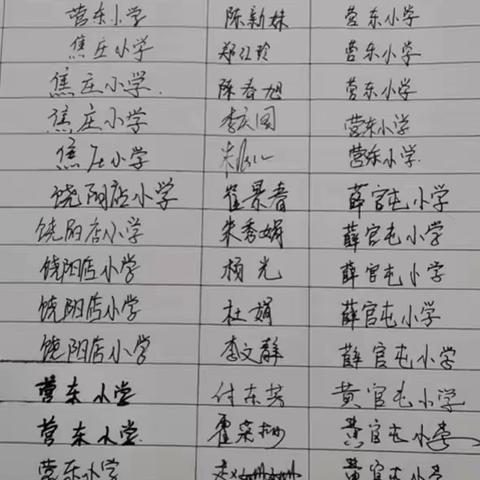 营东小学 陈新妹 营东小学
焦庄小学 郑红玲 营东小学
焦庄小学. 陈春旭 营东小学
焦庄小学 李庆国 营东小学
焦庄小学 营东小学.
饶阳店小学 崔景春 薛官屯小学
饶阳店小学 朱秀娟 薛官屯小学
饶阳店小学 杨光 薛官屯小学
饶阳店小学 杜娟 薛官屯小学
饶阳店小学 李文静 薛官屯小学
营东小学 付东芳 黄官屯小学
营东小学. 黄官屯小学
营东小学 黄官屯小学